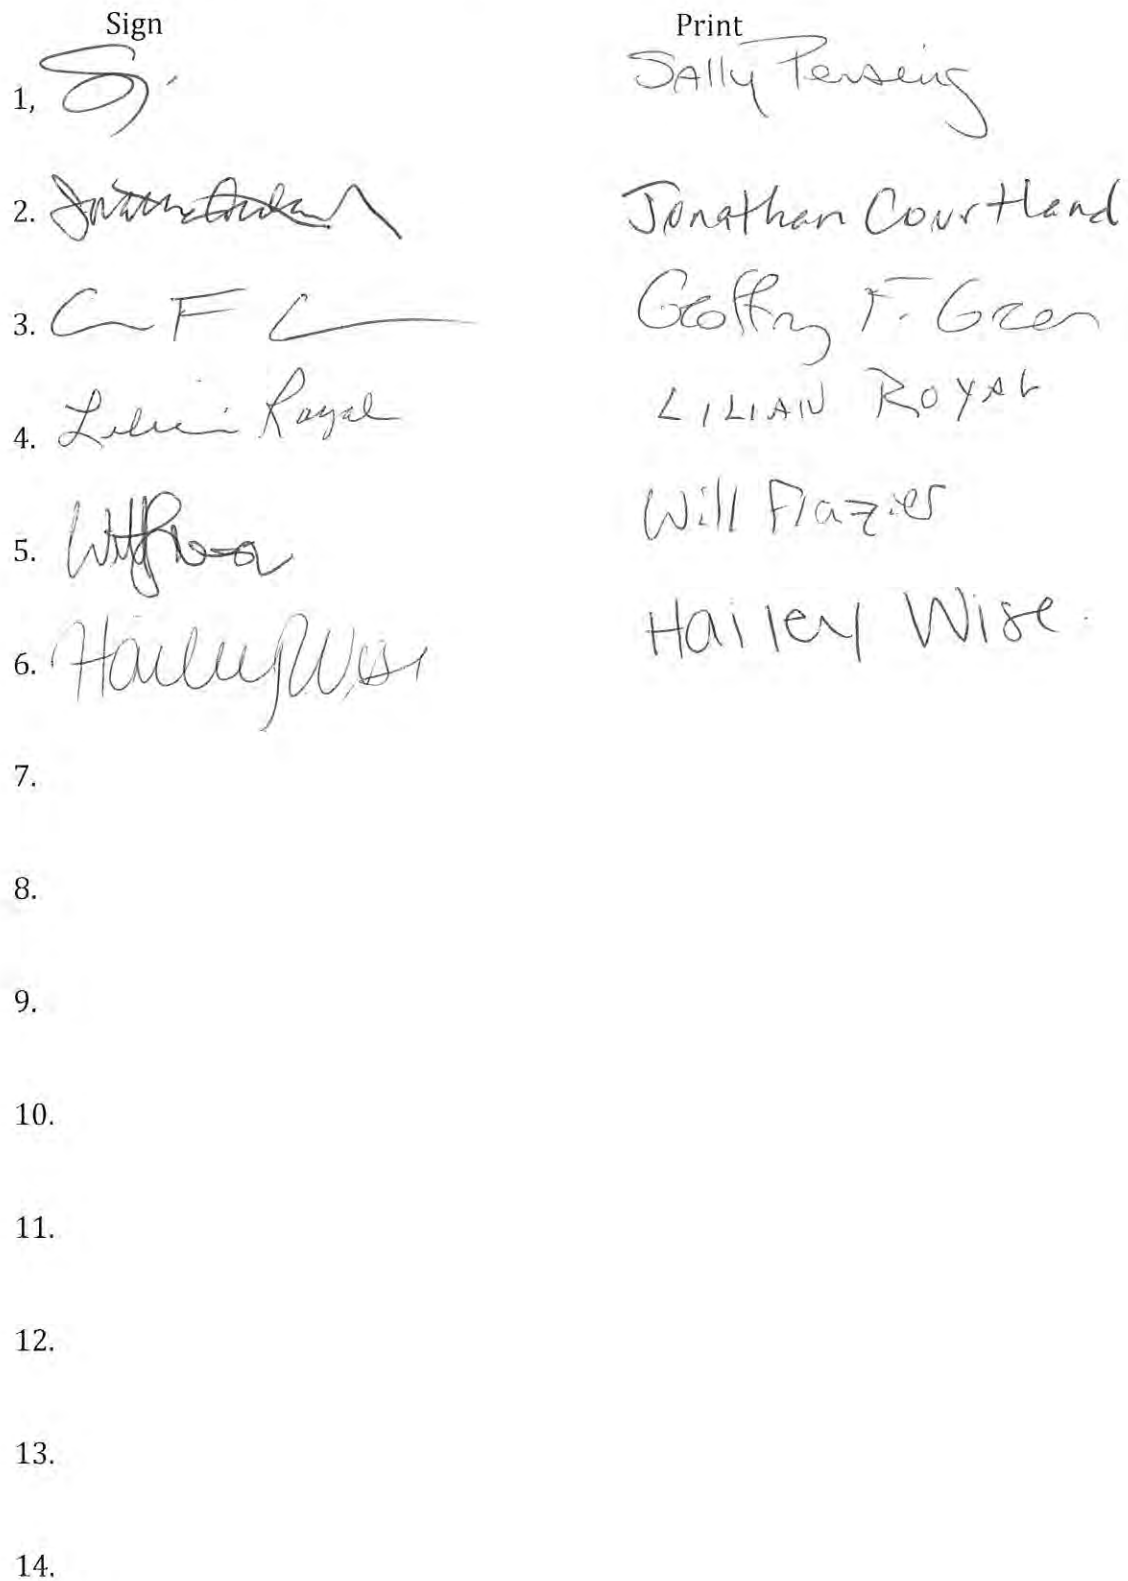 Sign Print
1, Sally Persing
2. Jonathan Courtland
3. G F G Geoffry F. Green
4. Lilian Royal LILIAN ROYAL
5. Will Frazier
6. Hailey Wise Hailey Wise
7.
8.
9.
10.
11.
12.
13.
14.